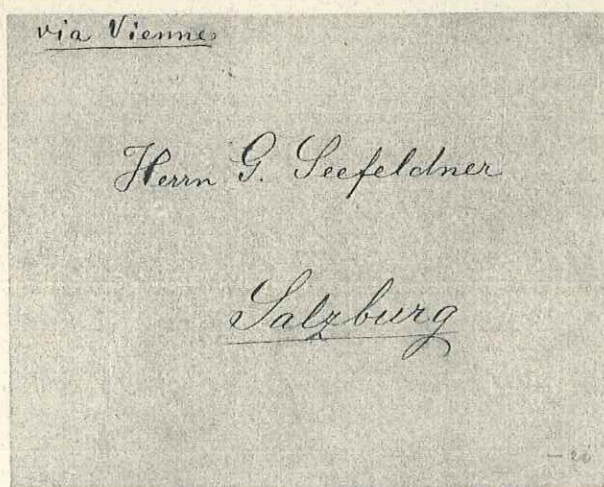 via Vienne
Herrn G. Seefeldner
Salzburg
- 20